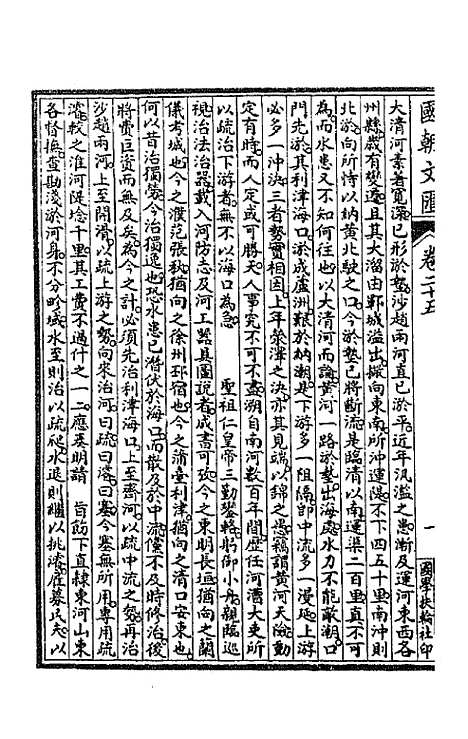 國朝文匯 卷二十五 一 國學扶輪社印
大清河素著寬深已形於墊沙趙兩河直已淤平近年汎濫之患漸及運河東西各
州縣歲有變遷且其大溜由鄆城溢出掀向東南所沖運隄不下四五十里南沖則
北於向所恃以納黃北駛之口今於墊已將斷流是臨清以南運渠二百里真不可
為而水患又不知何往也以大清河而論黃河一路於墊出海處水力不能敵潮口
門先於其利津海口淤成蘆洲艱於納潮是下游多一阻隔卽中流多一漫延上游
必多一沖決三者勢實相因上年之決亦其見端以錦之愚竊謂黃河天險動
定有時而人定或可勝天人事究不可不盡溯自南河數百年間歷任河漕大吏所
以疏治下游者無不以海口為急 聖祖仁皇帝三勤鑾輅躬御小舟親臨巡
視治法治器載入河防志及河工器具圖說者成書可攷今之東明長垣猶向之蘭
儀考城也今之濮范張秋猶向之徐州邳宿也今之蒲臺利津猶向之清口安東也
何以昔治獨勞今治獨逸也恐水患已潛伏於海口而散及於中流儻不及時修治後
將費巨資而無及矣為今之計必須先治利津海口上至齊河以疏中流之勢再治
沙趙兩河上至開滑以疏上游之勢向來治河曰疏曰濬曰塞今塞無所用專用疏
濬較之淮河隄埝千里其工費不過什之一二應奏明請 旨飭下直隸東河山東
各督撫查勘淺於河身不分畛域水至則治以疏爬水退則繼以挑濬雇募民夫以